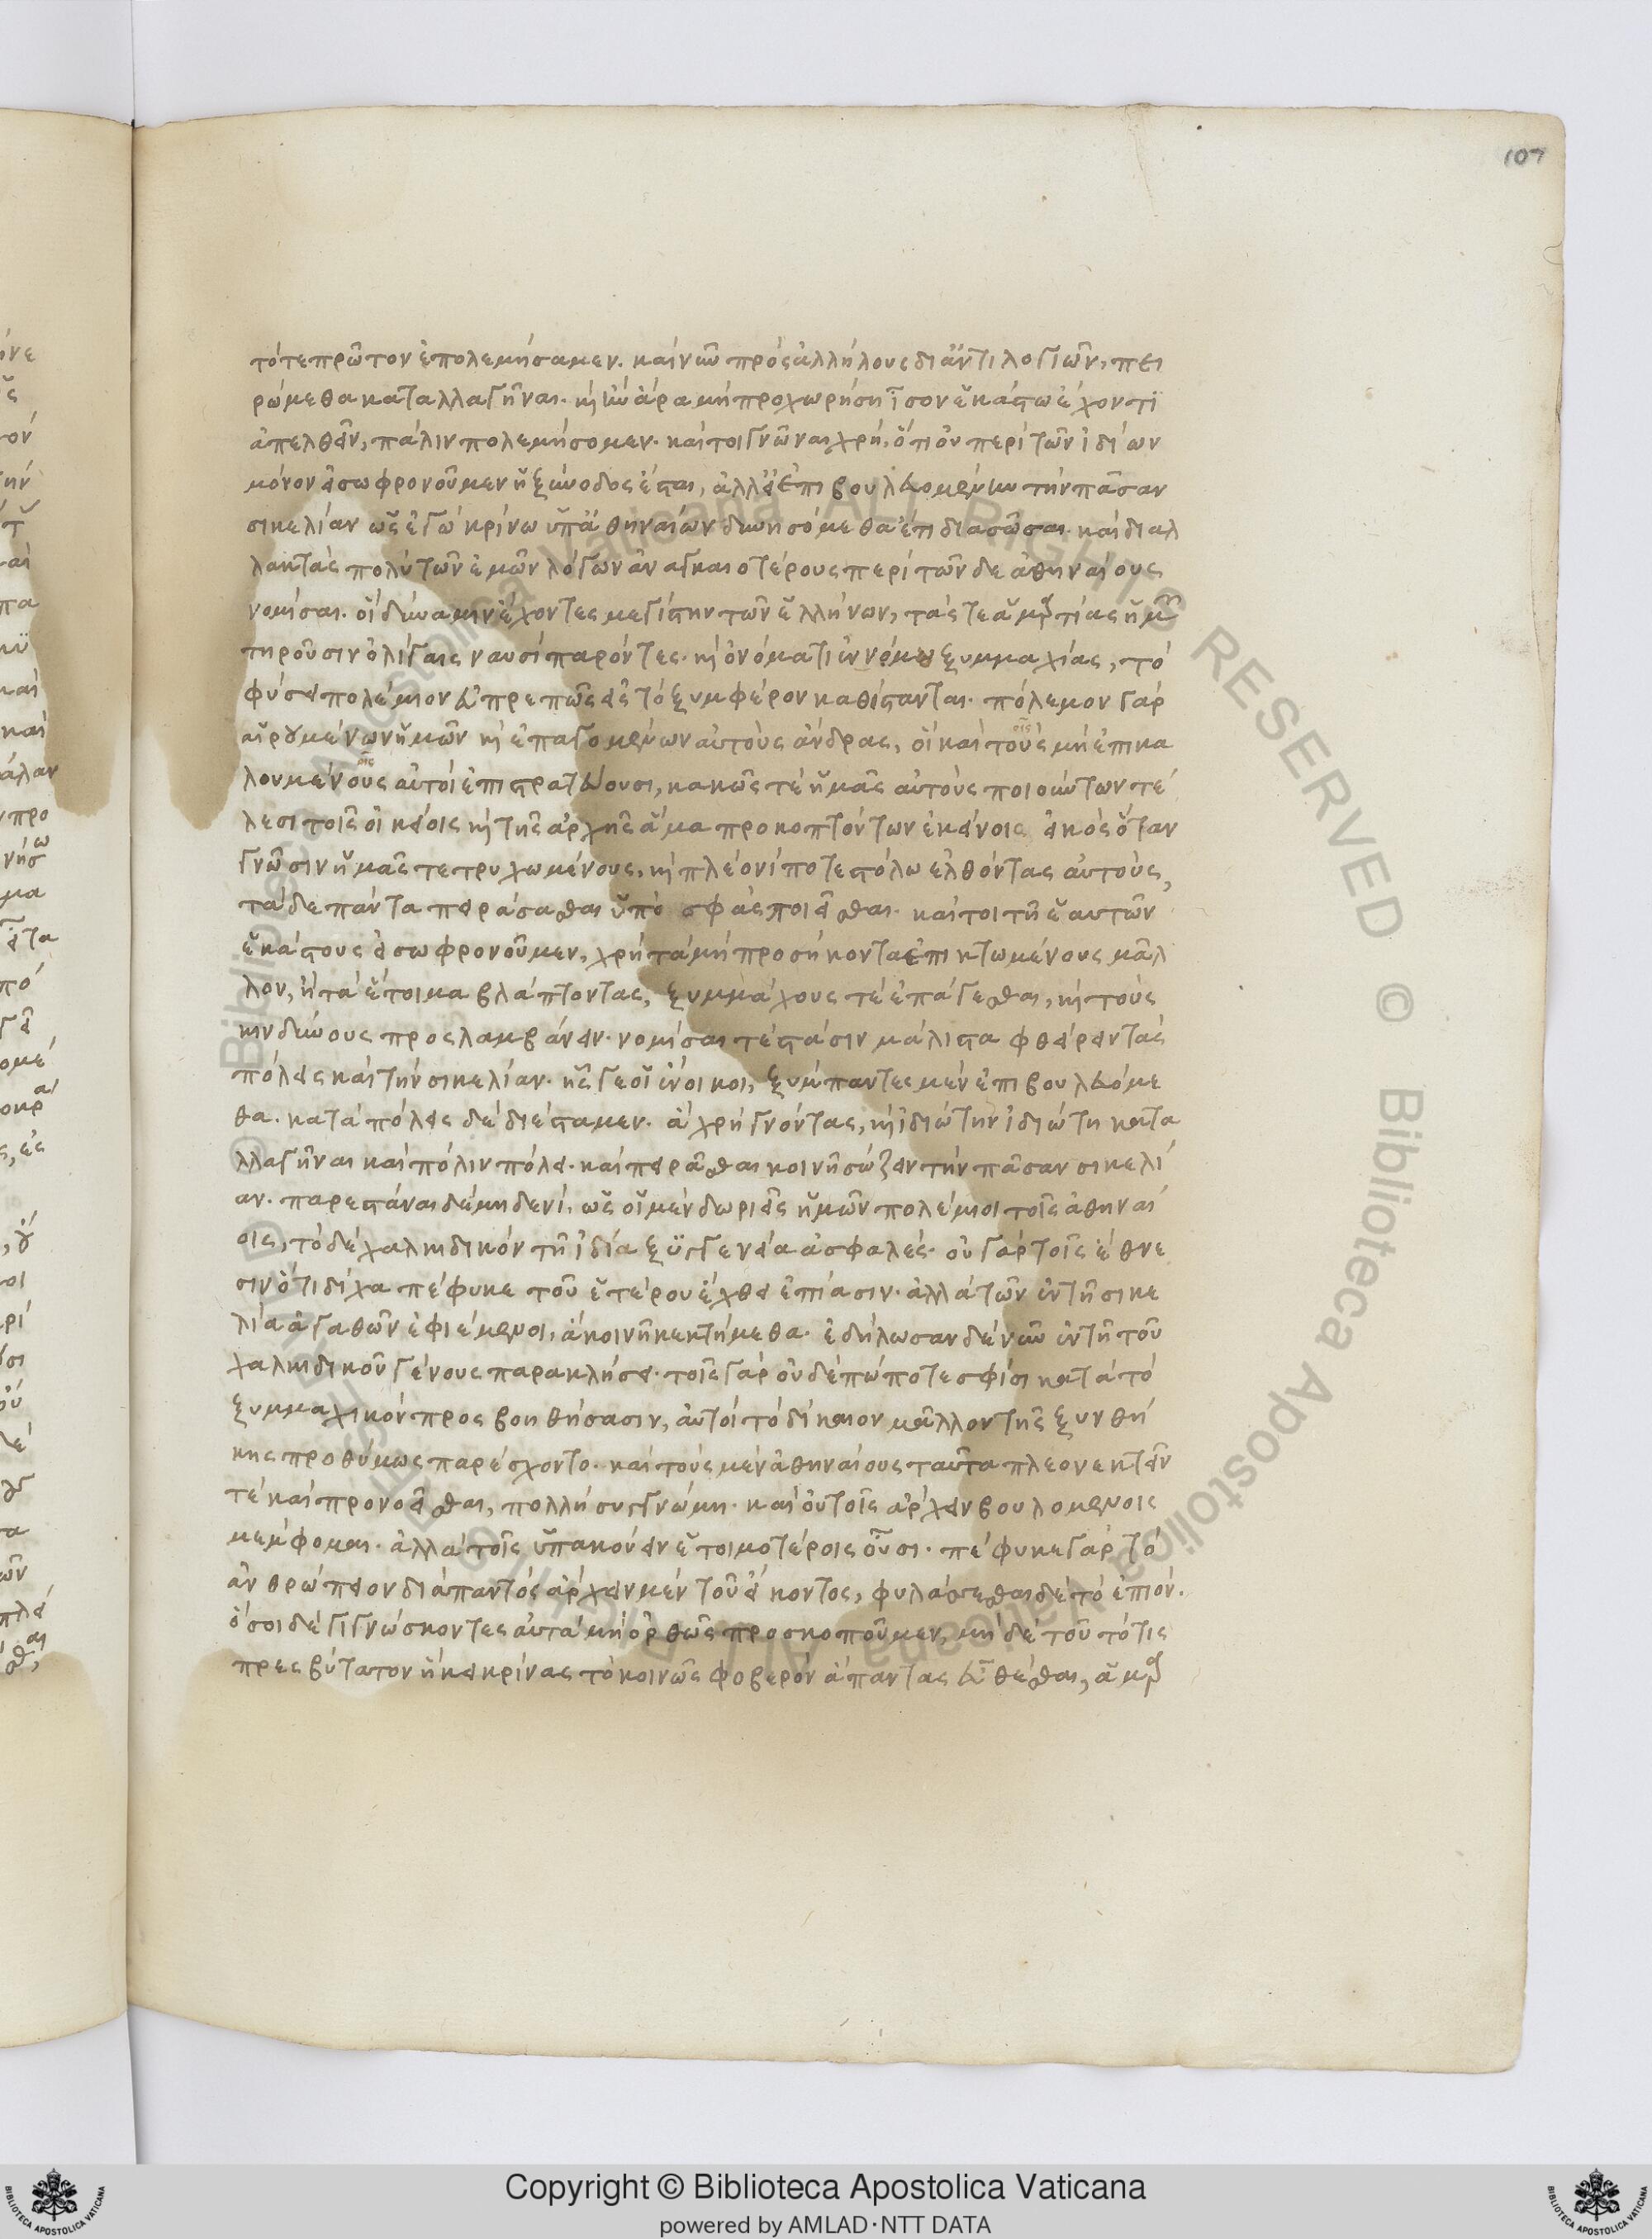 107
τότε πρῶτον ἐπολεμήσαμεν. καὶ νῦν πρὸς ἀλλήλους δι' ἀντιλογιῶν, πει
ρώμεθα καταλλαγῆναι. καὶ ἢν ἄρα μὴ προχωρήση ἴσον ἑκάστω ἔχοντι
ἀπελθεῖν, πάλιν πολεμήσομεν. καίτοι γνῶναι χρή, ὅτι οὐ περὶ τῶν ἰδίων
μόνον εἰ σωφρονοῦμεν ἡ ξύνοδος ἔσται, ἀλλ' εἰ ἐπιβουλευομένην τὴν πᾶσαν
σικελίαν ὡς ἐγὼ κρίνω ὑπ' ἀθηναίων δυνησόμεθα ἔτι διασῶσαι. καὶ διαλ
λακτὰς πολὺ τῶν ἐμῶν λόγων ἀναγκαιοτέρους περὶ τῶνδε ἀθηναίους
νομίσαι. οἳ δύναμιν ἔχοντες μεγίστην τῶν ἑλλήνων, τάς τε ἁμαρτίας ἡμῶν
τηροῦσιν ὀλίγαις ναυσὶ παρόντες. καὶ ὀνόματι ἐννόμω ξυμμαχίας, τὸ
φύσει πολέμιον εὐπρεπῶς ἐς τὸ ξυμφέρον καθίστανται. πόλεμον γὰρ
αἱρουμένων ἡμῶν καὶ ἐπαγομένων αὐτοὺς ἄνδρας, οἳ καὶ τοὺς μὴ ἐπικα
λουμένους αὐτοὶ ἐπιστρατεύουσι, κακῶς τὲ ἡμᾶς αὐτοὺς ποιούντων τέ
λεσι τοῖς οἰκείοις καὶ τῆς ἀρχῆς ἅμα προκοπτόντων ἐκείνοις εἰκὸς ὅταν
γνῶσιν ἡμᾶς τετρυχωμένους, καὶ πλέονί ποτε στόλω ἐλθόντας αὐτοὺς,
τάδε πάντα πειράσασθαι ὑπὸ σφᾶς ποιεῖσθαι. καίτοι τῆ ἑαυτῶν
ἑκάστους εἰ σωφρονοῦμεν, χρὴ τὰ μὴ προσήκοντα ἐπικτωμένους μᾶλ
λον, ἢ τὰ ἕτοιμα βλάπτοντας, ξυμμάχους τὲ ἐπάγεσθαι, καὶ τοὺς
κινδύνους προσλαμβάνειν. νομίσαι τὲ στάσιν μάλιστα φθείρειν τὰς
πόλεις καὶ τὴν σικελίαν. ἧς γε οἱ ἔνοικοι, ξύμπαντες μὲν ἐπιβουλευόμε
θα. κατὰ πόλεις δὲ διέσταμεν. ἃ χρὴ γνόντας, καὶ ἰδιώτην ἰδιώτη κατα
λλαγῆναι καὶ πόλιν πόλει. καὶ πειρᾶσθαι κοινῆ σώζειν τὴν πᾶσαν σικελί
αν. παρεστάναι δὲ μηδενὶ, ὡς οἱ μὲν δωριεῖς ἡμῶν πολέμιοι τοῖς ἀθηναί
οις, τὸ δὲ χαλκιδικὸν τῆ ἰάδι ξυγγενεία ἀσφαλές. οὐ γὰρ τοῖς ἔθνε
σιν ὅτι δίχα πέφυκε τοῦ ἑτέρου ἔχθει ἐπίασιν. ἀλλὰ τῶν ἐν τῆ σικε
λία ἀγαθῶν ἐφιέμενοι, ἃ κοινῆ κεκτήμεθα. ἐδήλωσαν δὲ νῦν ἐν τῆ τοῦ
χαλκιδικοῦ γένους παρακλήσει. τοῖς γὰρ οὐδεπώποτε σφίσι κατὰ τὸ
ξυμμαχικὸν προσβοηθήσασιν, αὐτοὶ τὸ δίκαιον μᾶλλον τῆς ξυνθή
κης προθύμως παρέσχοντο. καὶ τοὺς μὲν ἀθηναίους ταῦτα πλεονεκτεῖν
τὲ καὶ προνοεῖσθαι, πολλὴ συγγνώμη. καὶ οὐ τοῖς ἄρχειν βουλομένοις
μέμφομαι. ἀλλὰ τοῖς ὑπακούειν ἑτοιμοτέροις οὖσι. πέφυκε γὰρ τὸ
ἀνθρώπειον διὰ παντὸς ἄρχειν μὲν τοῦ εἴκοντος, φυλάσσεσθαι δὲ τὸ ἐπιόν.
ὅσοι δὲ γιγνώσκοντες αὐτὰ μὴ ὀρθῶς προσκοποῦμεν, μηδὲ τοῦτό τις
πρεσβύτατον ἥκει κρίνας τὸ κοινῶς φοβερὸν ἅπαντας εὖ θέσθαι, ἁμαρ
Copyright © Biblioteca Apostolica Vaticana
powered by AMLAD·NTT DATA